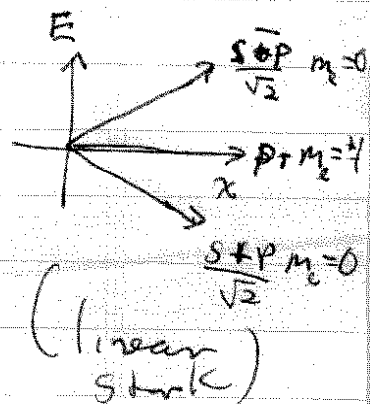 E
S - P
√2 m_l = 0
P, m_l = ±1
x
S + P
√2 m_l = 0
(linear
Stark)